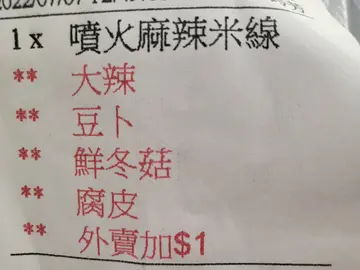 1 x 噴火麻辣米線
** 大辣
** 豆卜
** 鮮冬菇
** 腐皮
** 外賣加$1